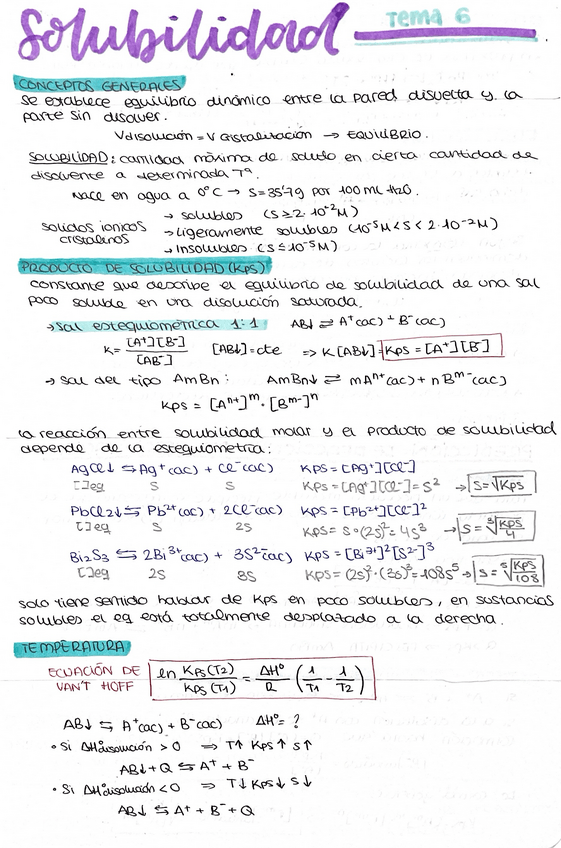 Solubilidad Tema 6
CONCEPTOS GENERALES
Se establece equilibrio dinámico entre la pared disuelta y la
parte sin disolver.
Vdisolución = V cristalización → EQUILIBRIO.
SOLUBILIDAD: cantidad máxima de soluto en cierta cantidad de
disolvente a determinada Tª.
NaCl en agua a 0ºC → S=35'7g por 100 ml H2O.
sólidos iónicos cristalinos
→ solubles (S ≥ 2·10⁻²M)
→ ligeramente solubles (10⁻⁵M < S < 2·10⁻²M)
→ Insolubles (S ≤ 10⁻⁵M)
PRODUCTO DE SOLUBILIDAD (KPS)
constante que describe el equilibrio de solubilidad de una sal
poco soluble en una disolución saturada.
→ Sal estequiométrica 1:1 AB↓ ⇌ A⁺(ac) + B⁻(ac)
K = [A⁺][B⁻] / [AB↓] [AB↓] = cte ⇒ K[AB↓] = KPS = [A⁺][B⁻]
→ Sal del tipo AmBn: AmBn↓ ⇌ mAⁿ⁺(ac) + nBᵐ⁻(ac)
KPS = [Aⁿ⁺]ᵐ · [Bᵐ⁻]ⁿ
La reacción entre solubilidad molar y el producto de solubilidad
depende de la estequiometría:
AgCl↓ ⇆ Ag⁺(ac) + Cl⁻(ac) KPS = [Ag⁺][Cl⁻]
[]eq S S KPS = [Ag⁺][Cl⁻] = S² → S = √KPS
PbCl2↓ ⇆ Pb²⁺(ac) + 2Cl⁻(ac) KPS = [Pb²⁺][Cl⁻]²
[]eq S 2S KPS = S·(2S)² = 4S³ → S = ∛(KPS/4)
Bi2S3 ⇆ 2Bi³⁺(ac) + 3S²⁻(ac) KPS = [Bi³⁺]²[S²⁻]³
[]eq 2S 8S KPS = (2S)²·(3S)³ = 108S⁵ → S = ⁵√(KPS/108)
solo tiene sentido hablar de KPS en poco solubles, en sustancias
solubles el eq está totalmente desplazado a la derecha.
TEMPERATURA
ECUACIÓN DE VAN'T HOFF ln KPS(T2) / KPS(T1) = ΔHº/R (1/T1 - 1/T2)
AB↓ ⇆ A⁺(ac) + B⁻(ac) ΔHº = ?
• Si ΔHºdisolución > 0 ⇒ T↑ KPS↑ S↑
AB↓ + Q ⇆ A⁺ + B⁻
• Si ΔHºdisolución < 0 ⇒ T↓ KPS↓ S↓
AB↓ ⇆ A⁺ + B⁻ + Q